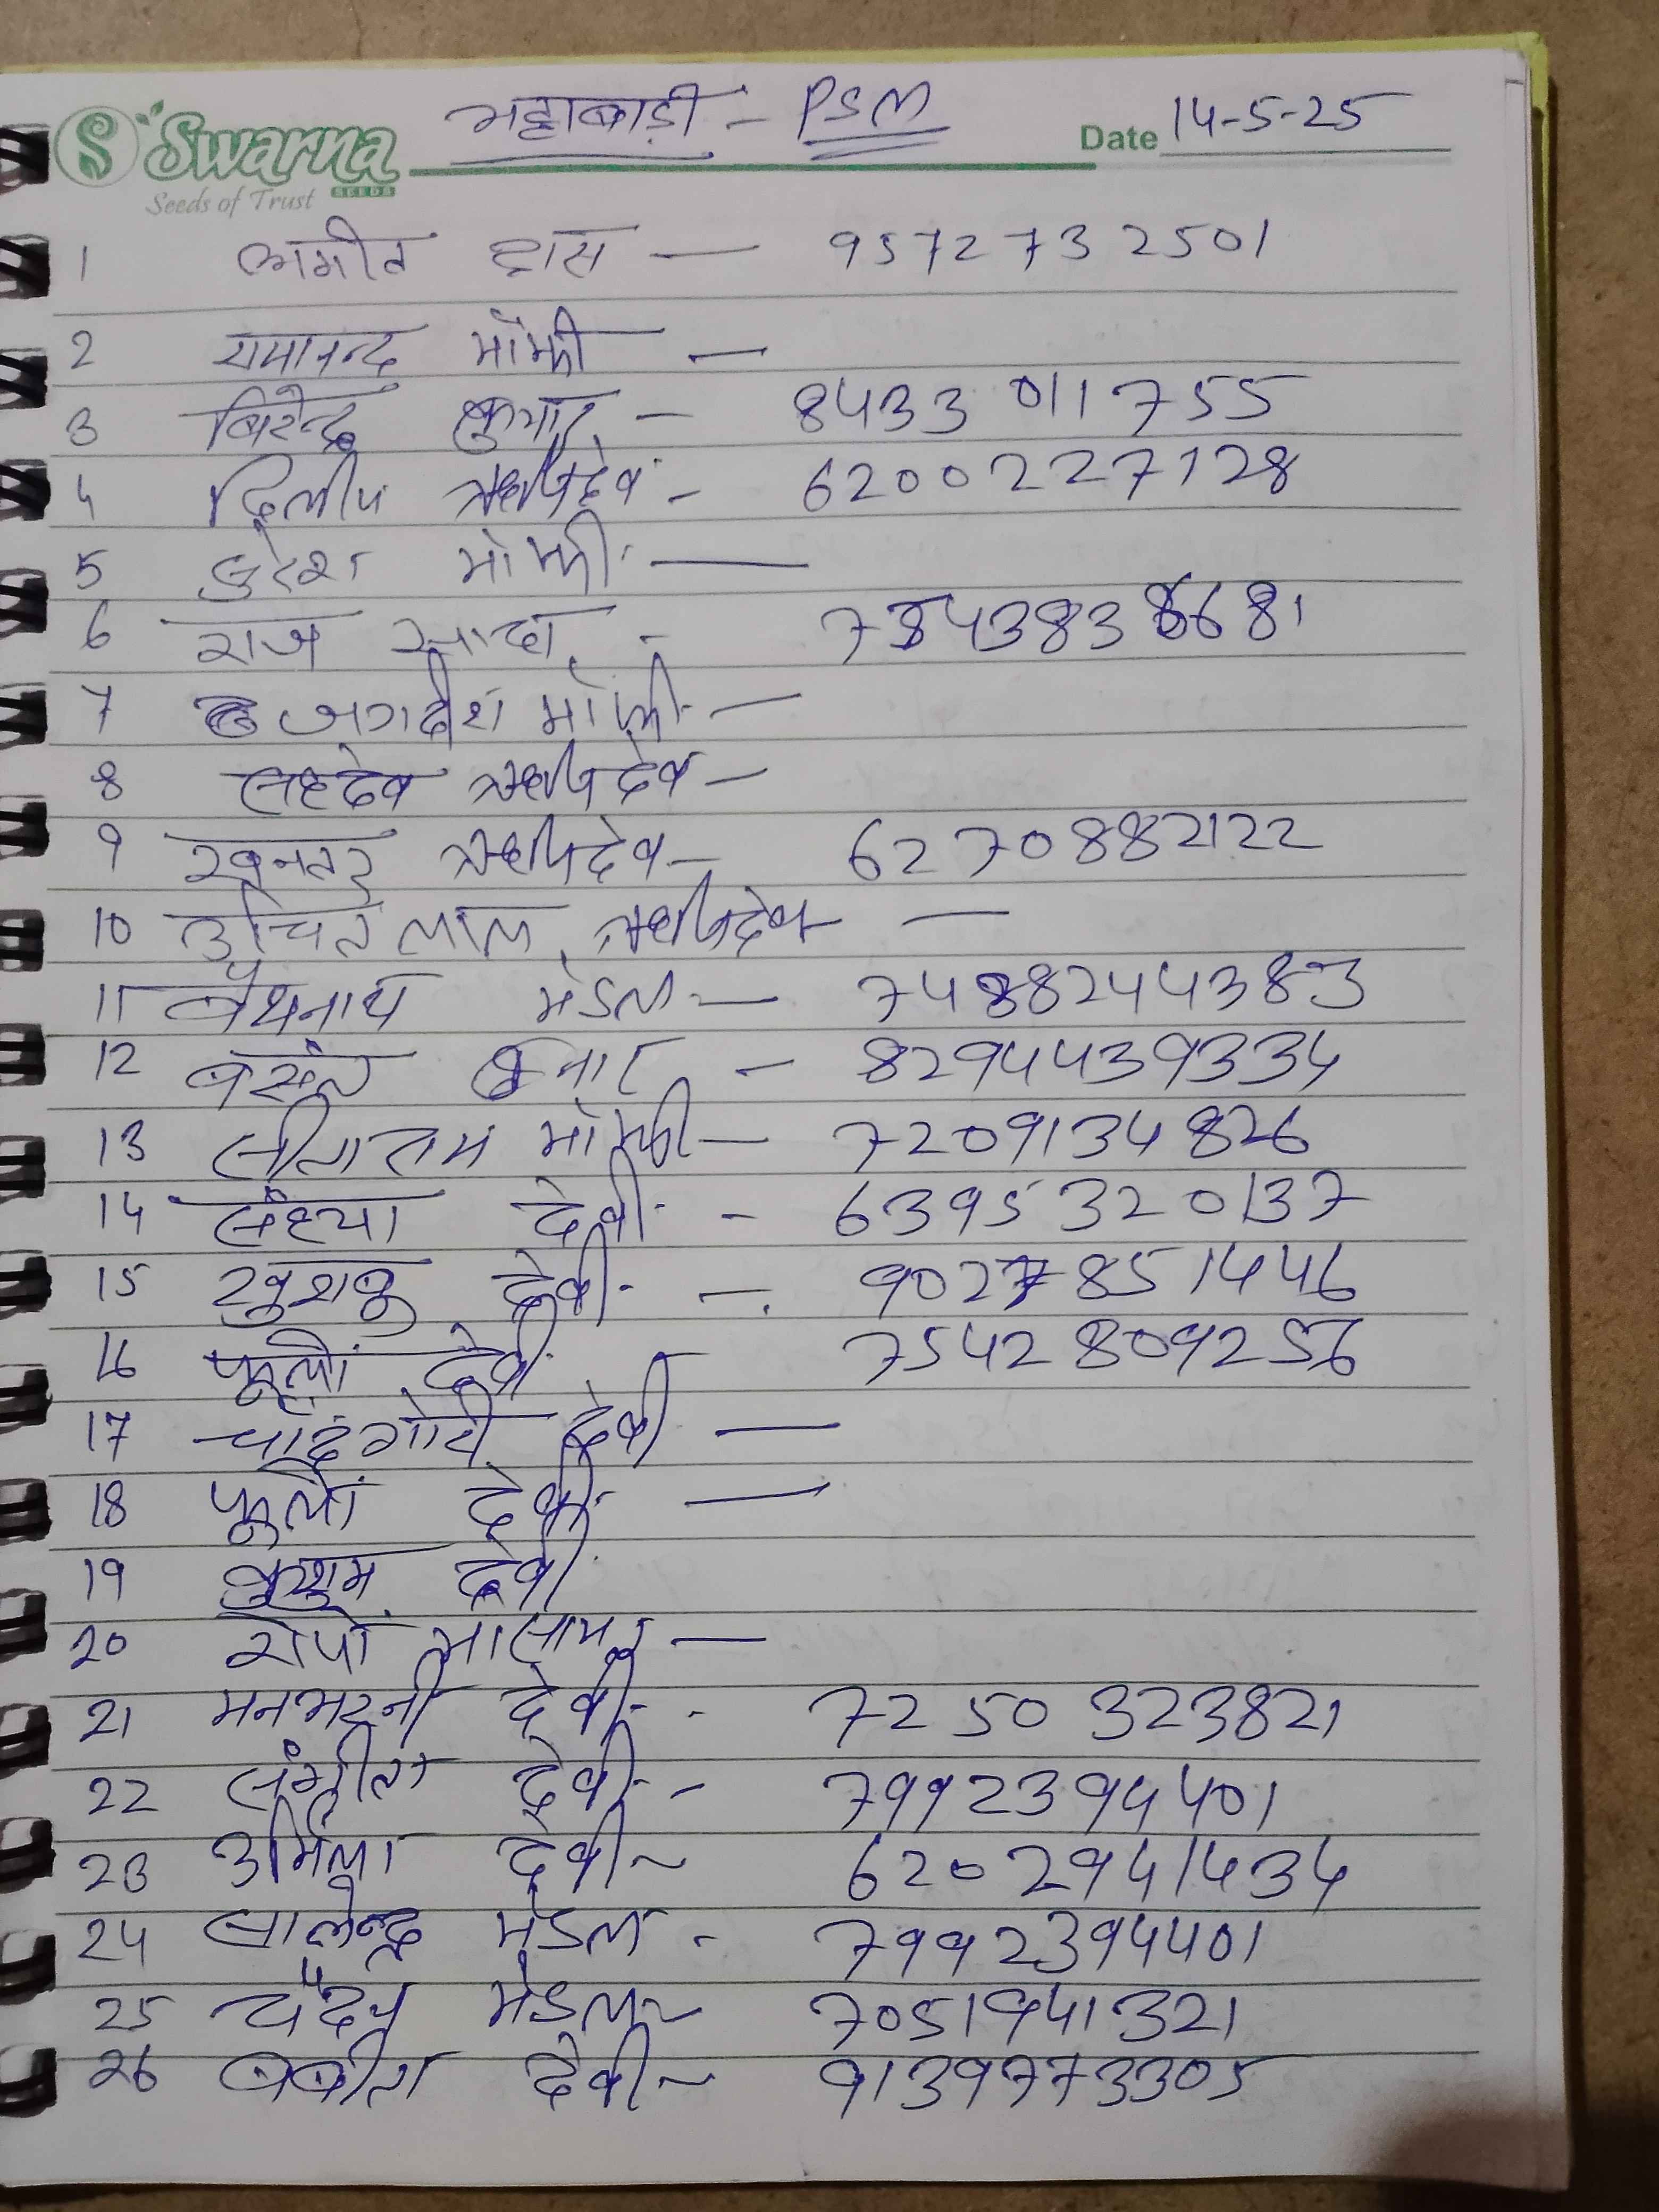 Swarna
SEEDS
Seeds of Trust
भट्टाबाड़ी - PSM
Date 14-5-25
1 दास — 9572732501
2 रामानन्द माँझी —
3 बिरेन्द्र कुमार - 8433011755
4 दिलीप ऋषिदेव - 6200227128
5 सुरेश माँझी —
6 राज सादा -
7 जगदीश माँझी —
8 सहदेव ऋषिदेव -
9 ऋषिदेव - 6270882122
10 उचित लाल ऋषिदेव —
11 बैधनाथ मंडल — 7488244383
12 बसंत कुमार - 8294439334
13 सीताराम माँझी — 7209134826
14 संध्या देवी - 6395320137
15 खुशबु देवी - 9027851446
16 फूलो देवी 75428809256
17 देवी —
18 फूलो देवी —
19 कुसुम देवी
20 —
21 मनभरनी देवी - 7250323821
22 संगीता देवी - 7992394401
23 उर्मिला देवी - 6202941434
24 मंडल - 7992394401
25 मंडल - 7051941321
26 बबीता देवी - 9139773305